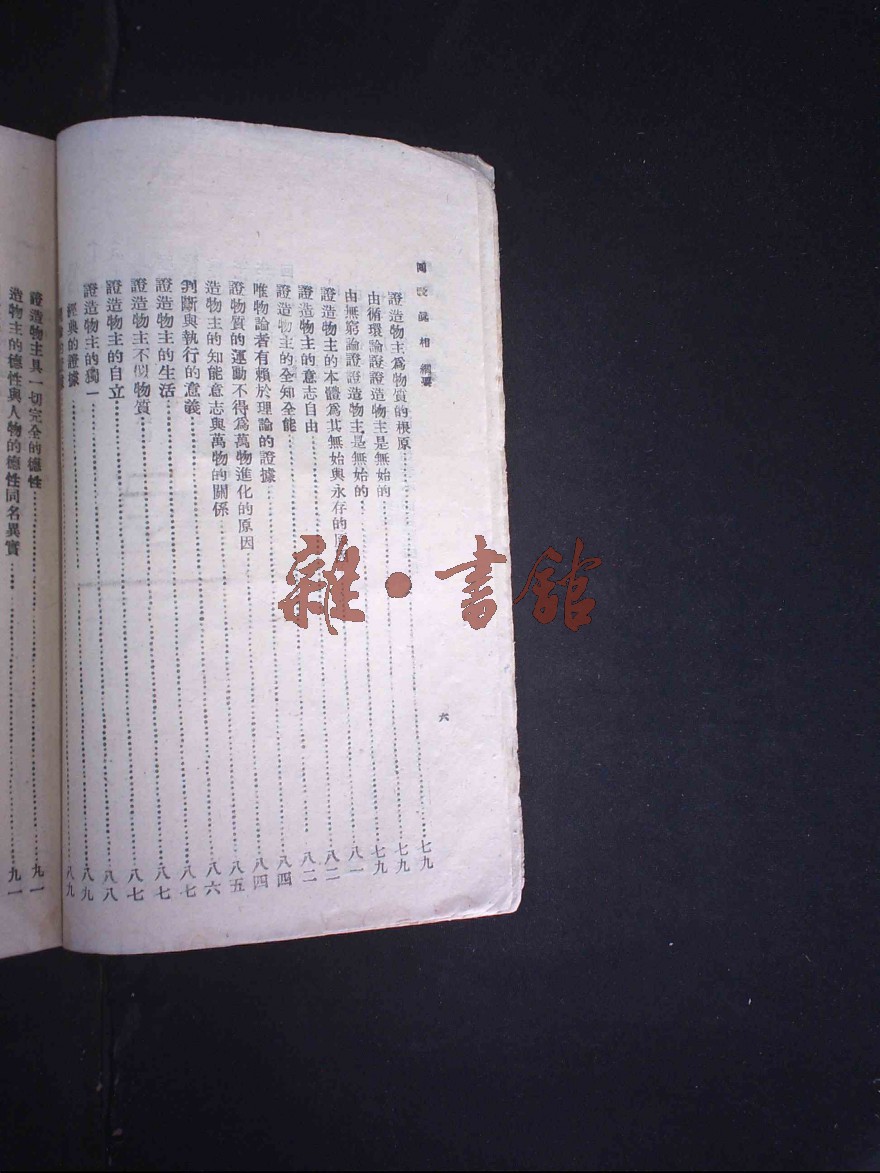 回教眞相 綱要
六
證造物主爲物質的根原……七九
由循環論證證造物主是無始的……七九
由無窮論證證造物主是無始的……七九
證造物主的本體爲其無始與永存的……八一
證造物主的意志自由……八二
證造物主的全知全能……八二
唯物論者有賴於理論的證據……八四
證物質的運動不得爲萬物進化的原因……八四
造物主的知能意志與萬物的關係……八五
判斷與執行的意義……八六
證造物主的生活……八七
證造物主不似物質……八七
證造物主的自立……八七
證造物主的獨一……八八
經典的證據……八九
的證據……八九
證造物主具一切完全的德性……九一
造物主的德性與人物的德性同名異實……九一
雜·書館